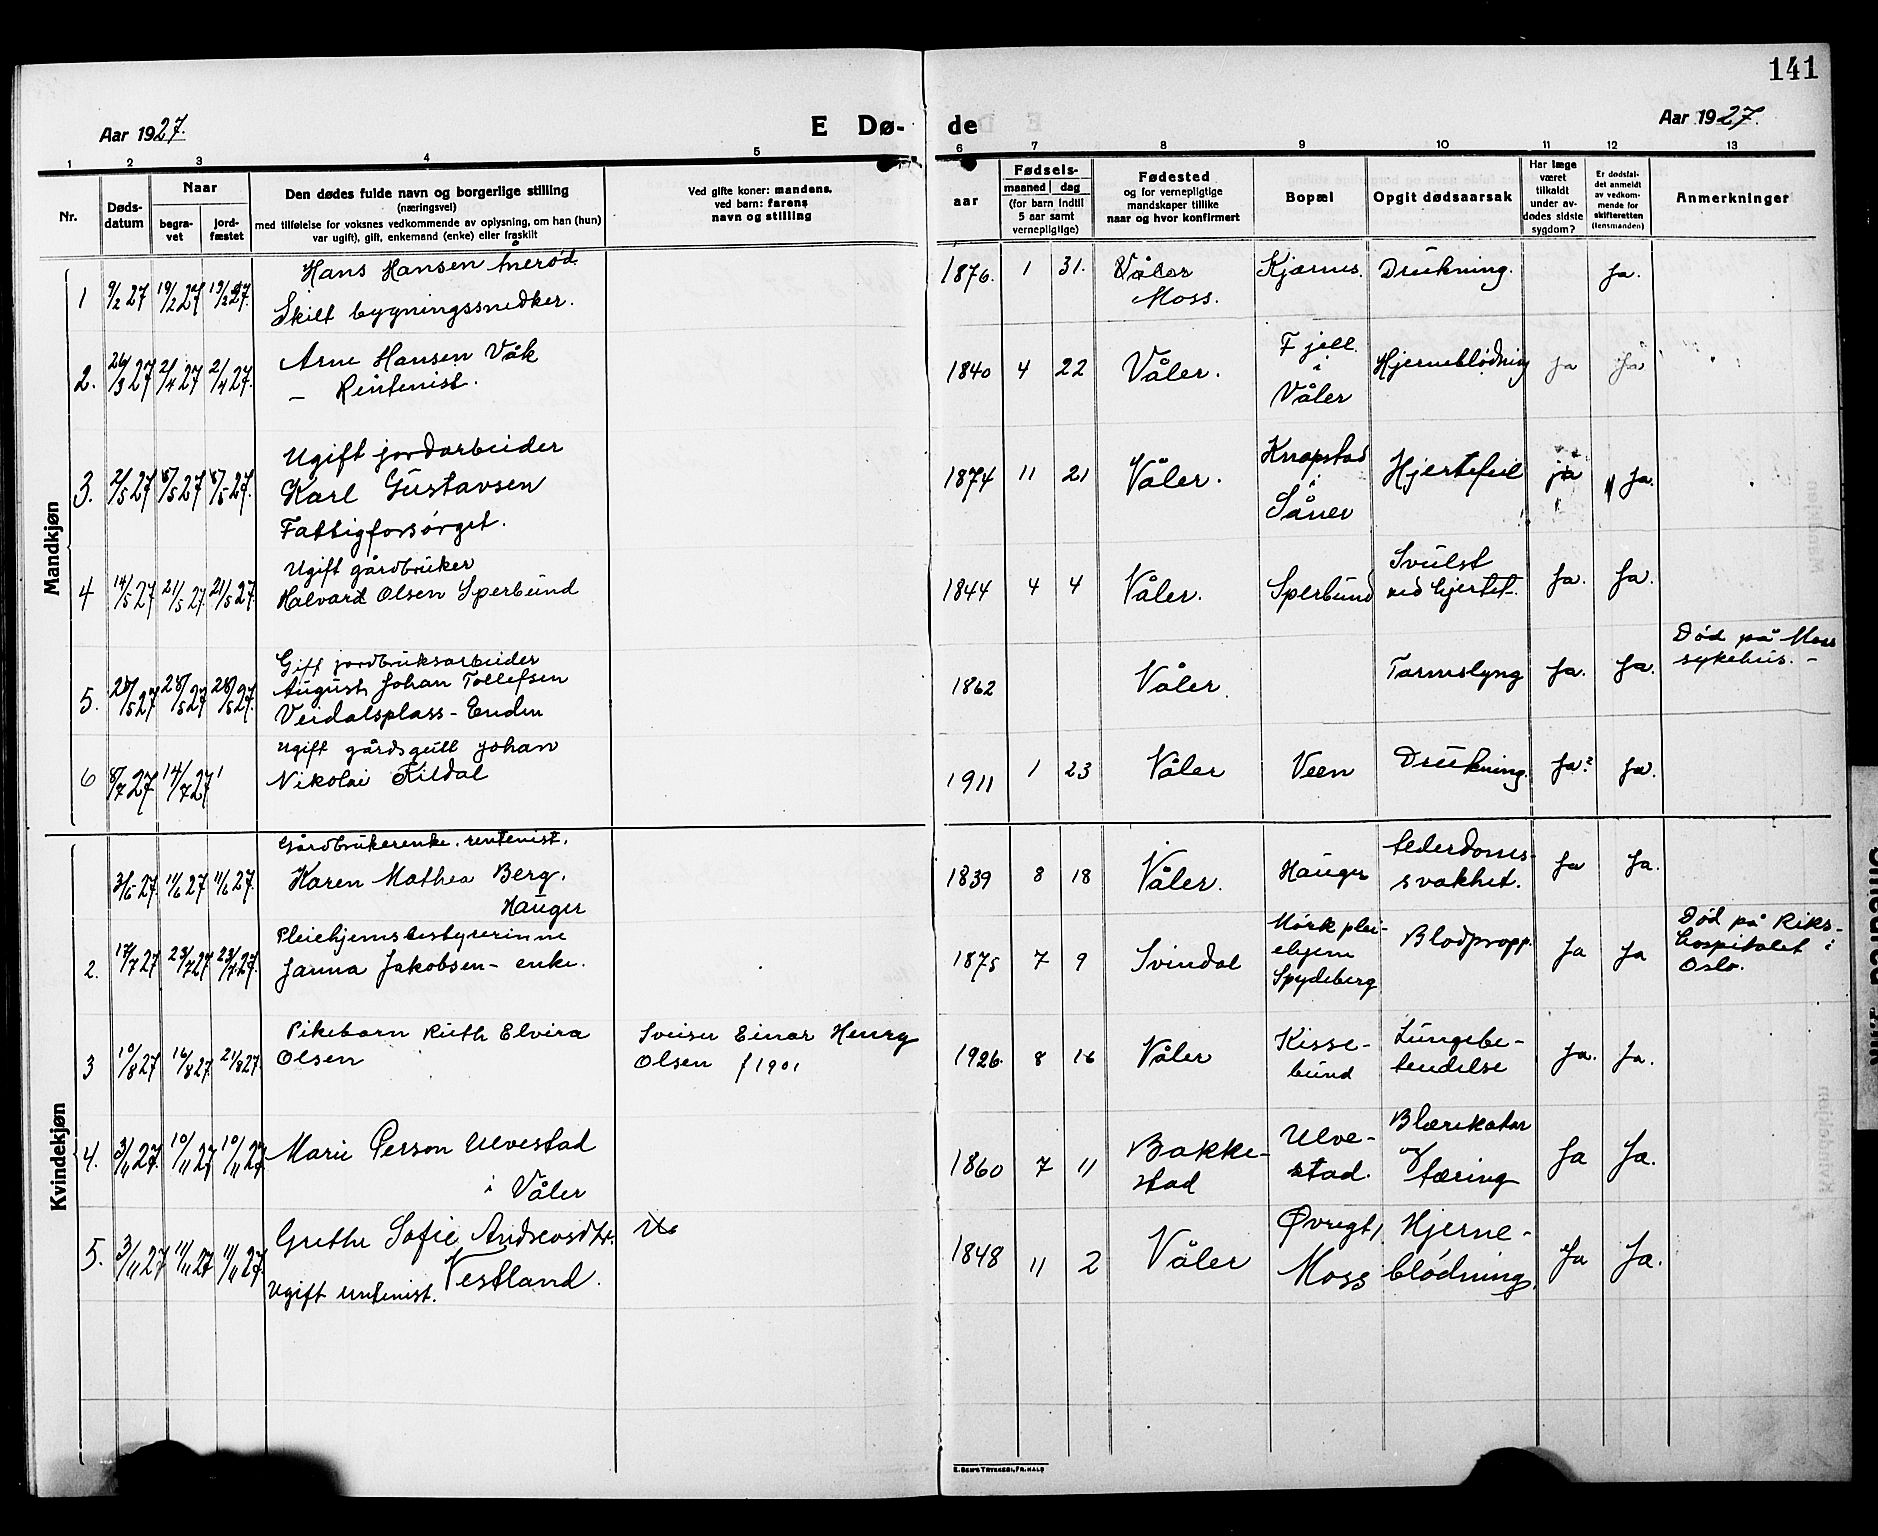 141
Aar 1927.
E Dø-
de
Aar 1927.
1 2 3 4 5
6 7 8 9 10 11 12 13
Nr.
Døds-
datum
Naar
begra-
vet
jord-
fæstet
Den dødes fulde navn og borgerlige stilling
(næringsvei)
med tilføielse for voksnes vedkommende av oplysning, om han (hun)
var ugift), gift, enkemand (enke) eller fraskilt
Ved gifte koner: mandens,
ved barn: farens
navn og stilling
aar
Fødsels-
maaned dag
(for barn indtil
5 aar samt
vernepligtige)
Fødested
og for vernepligtige
mandskaper tillike
naar og hvor konfirmert
Bopæl
Opgit dødsaarsak
Har læge
været
tilkaldt
under av-
dødes sidste
sygdom?
Er dødsfal-
det anmeldt
av vedkom-
mende for
skifteretten
(lensmanden)
Anmerkninger
Mandkjøn
1 9/2 27 19/2 27 19/2 27. Hans Hansen Ånerød
Skilt bygningssnedker.
1876. 1 31. Våler Moss. Kjærnes. Drukning. Ja.
2. 26/3 27 2/4 27 2/4 27. Arne Hansen Våk
– Rentenist.
1840 4 22 Våler. Fjell i Våler Hjerneblødning ja ja
3. 2/5 27 8/5 27 8/5 27. Ugift jordarbeider
Karl Gustavsen
Fattigforsørget.
1874 11 21 Våler. Knapstad Såner Hjertefeil ja Ja.
4 14/5 27 21/5 27. 21/5 27. Ugift gårdbruker
Halvard Olsen Sperbund
1844 4 4 Våler. Sperbund Svulst ved hjertet. Ja. Ja.
5. 27 28/5 27 28/5 27. Gift jordbruksarbeider
August Johan Tollefsen
Verdalsplass – Enden
1862 Våler. Tarmslyng Ja. Ja. Død på Moss
sykehus. –
6 8/7 27 14/7 27 Ugift gårdsgutt Johan
Nikolai Kildal
1911 1 23 Våler Veen Drukning. Ja? Ja.
Kvindekjøn
27. 11/6 27 11/6 27. Gårdbrukerenke. rentenist.
Karen Mathea Berg.
Hauger
1839 8 18 Våler. Hauger alderdoms-
svakhet. Ja Ja.
2. 17/7 27 23/7 27 23/7 27. Pleiehjemsbestyrerinne
Janna Jakobsen – enke.
1875 7 9 Svindal Mørk plei-
ehjem
Spydeberg Blodpropp. Ja Ja Død på Riks-
hospitalet i
Oslo.
3 10/8 27 16/8 27. 21/8 27. Pikebarn Ruth Elvira
Olsen
Sveiser Einar Henry
Olsen f 1901
1926. 8 16 Våler Kisse-
bund Lungebe-
tendelse Ja. Ja.
4. 3/11 27. 10/11 27 10/11 27 Marie Person Ulvestad
i Våler
1860 7 11 Bakke-
stad Ulve-
stad. Blærekatar
og tæring Ja Ja.
5. 3/11 27 11/11 27 11/11 27 Grethe Sofie Andreasdtr.
Vestland.
Ugift rentenist.
1848 11 2 Våler Moss Hjerne-
blødning. Ja Ja.